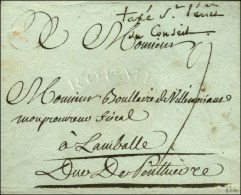 taxé Sr
du Conseil
Monsieur
Monsieur Boullaire de Villemoisans
mon procureur fiscal
a Lamballe
Duc De Penthièvre